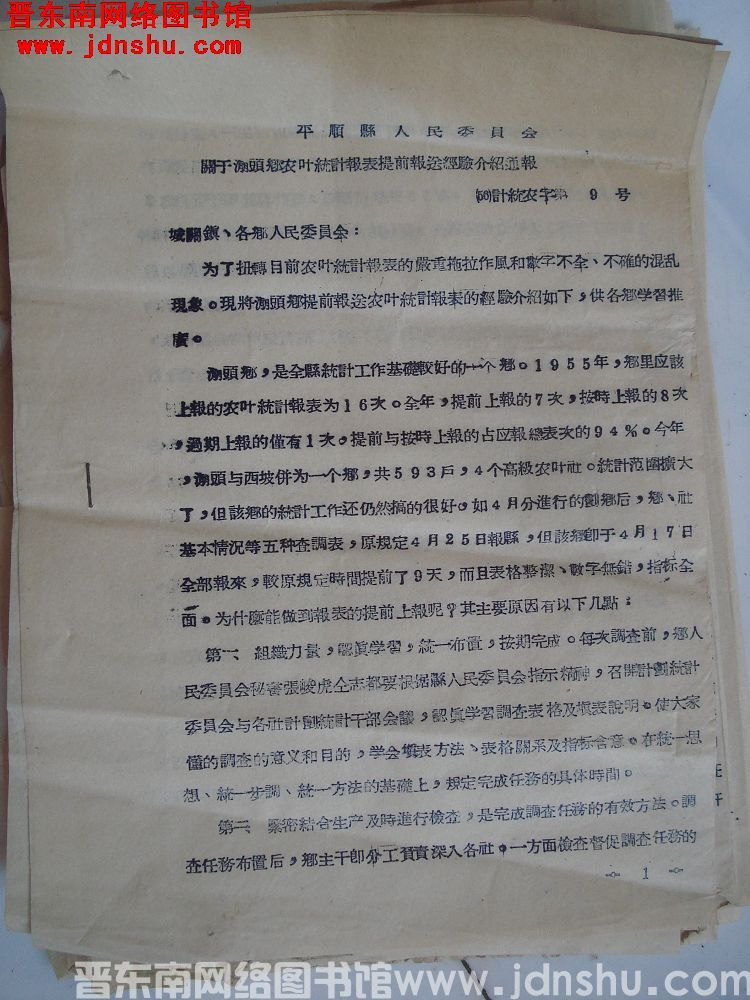 晋东南网络图书馆
www.jdnshu.com
平順縣人民委員会
關于瀨頭鄉农叶統計報表提前報送經驗介紹通報
(56)計統农字第 9 号
城關鎮、各鄉人民委員会：
为了扭轉目前农叶統計報表的嚴重拖拉作風和數字不全、不確的混乱
現象。現將頭鄉提前報送农叶統計報表的經驗介紹如下，供各鄉学習推
廣。
頭鄉，是全縣統計工作基礎較好的一个鄉。1955年，鄉里应該
上報的农叶統計報表为16次。全年，提前上報的7次，按時上報的8次
，過期上報的僅有1次。提前与按時上報的占应報總表次的94%。今年
，頭与西坡併为一个鄉，共593戶，4个高級农叶社。統計范圍擴大
了，但該鄉的統計工作还仍然搞的很好。如4月分進行的劃鄉后，鄉、社
基本情况等五种查調表，原規定4月25日報縣，但該鄉即于4月17日
全部報來，較原規定時間提前了9天，而且表格整潔、數字無錯，指标全
面。为什麽能做到報表的提前上報呢？其主要原因有以下几點：
第一、組織力量，認眞学習，統一布置，按期完成。每次調查前，鄉人
民委員会秘書張峻虎仝志都要根据縣人民委員会指示精神，召開計劃統計
委員会与各社計劃統計干部会議，認眞学習調查表格及填表說明。使大家
懂的調查的意义和目的，学会填表方法、表格關系及指标含意。在統一思
想、統一步調、統一方法的基礎上，規定完成任務的具体時間。
第二、緊密結合生产及時進行檢查，是完成調查任務的有效方法。調
查任務布置后，鄉主干即分工負責深入各社。一方面檢查督促調查任務的
1
晋东南网络图书馆www.jdnshu.com